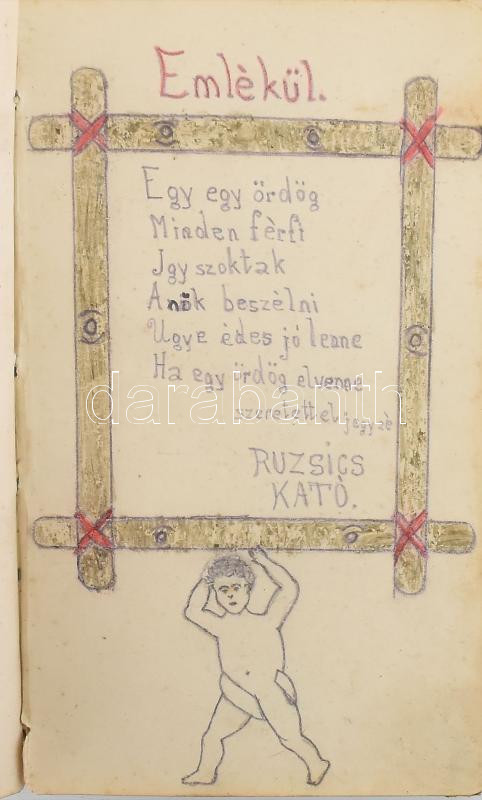 Emlèkül.
Egy egy ördög
Minden fèrfi
Jgy szoktak
A nők beszèlni
Ugye èdes jó lenne
Ha egy ördög elvenne
darabanth
szeretettel jegyzè
RUZSICS
KATÒ.